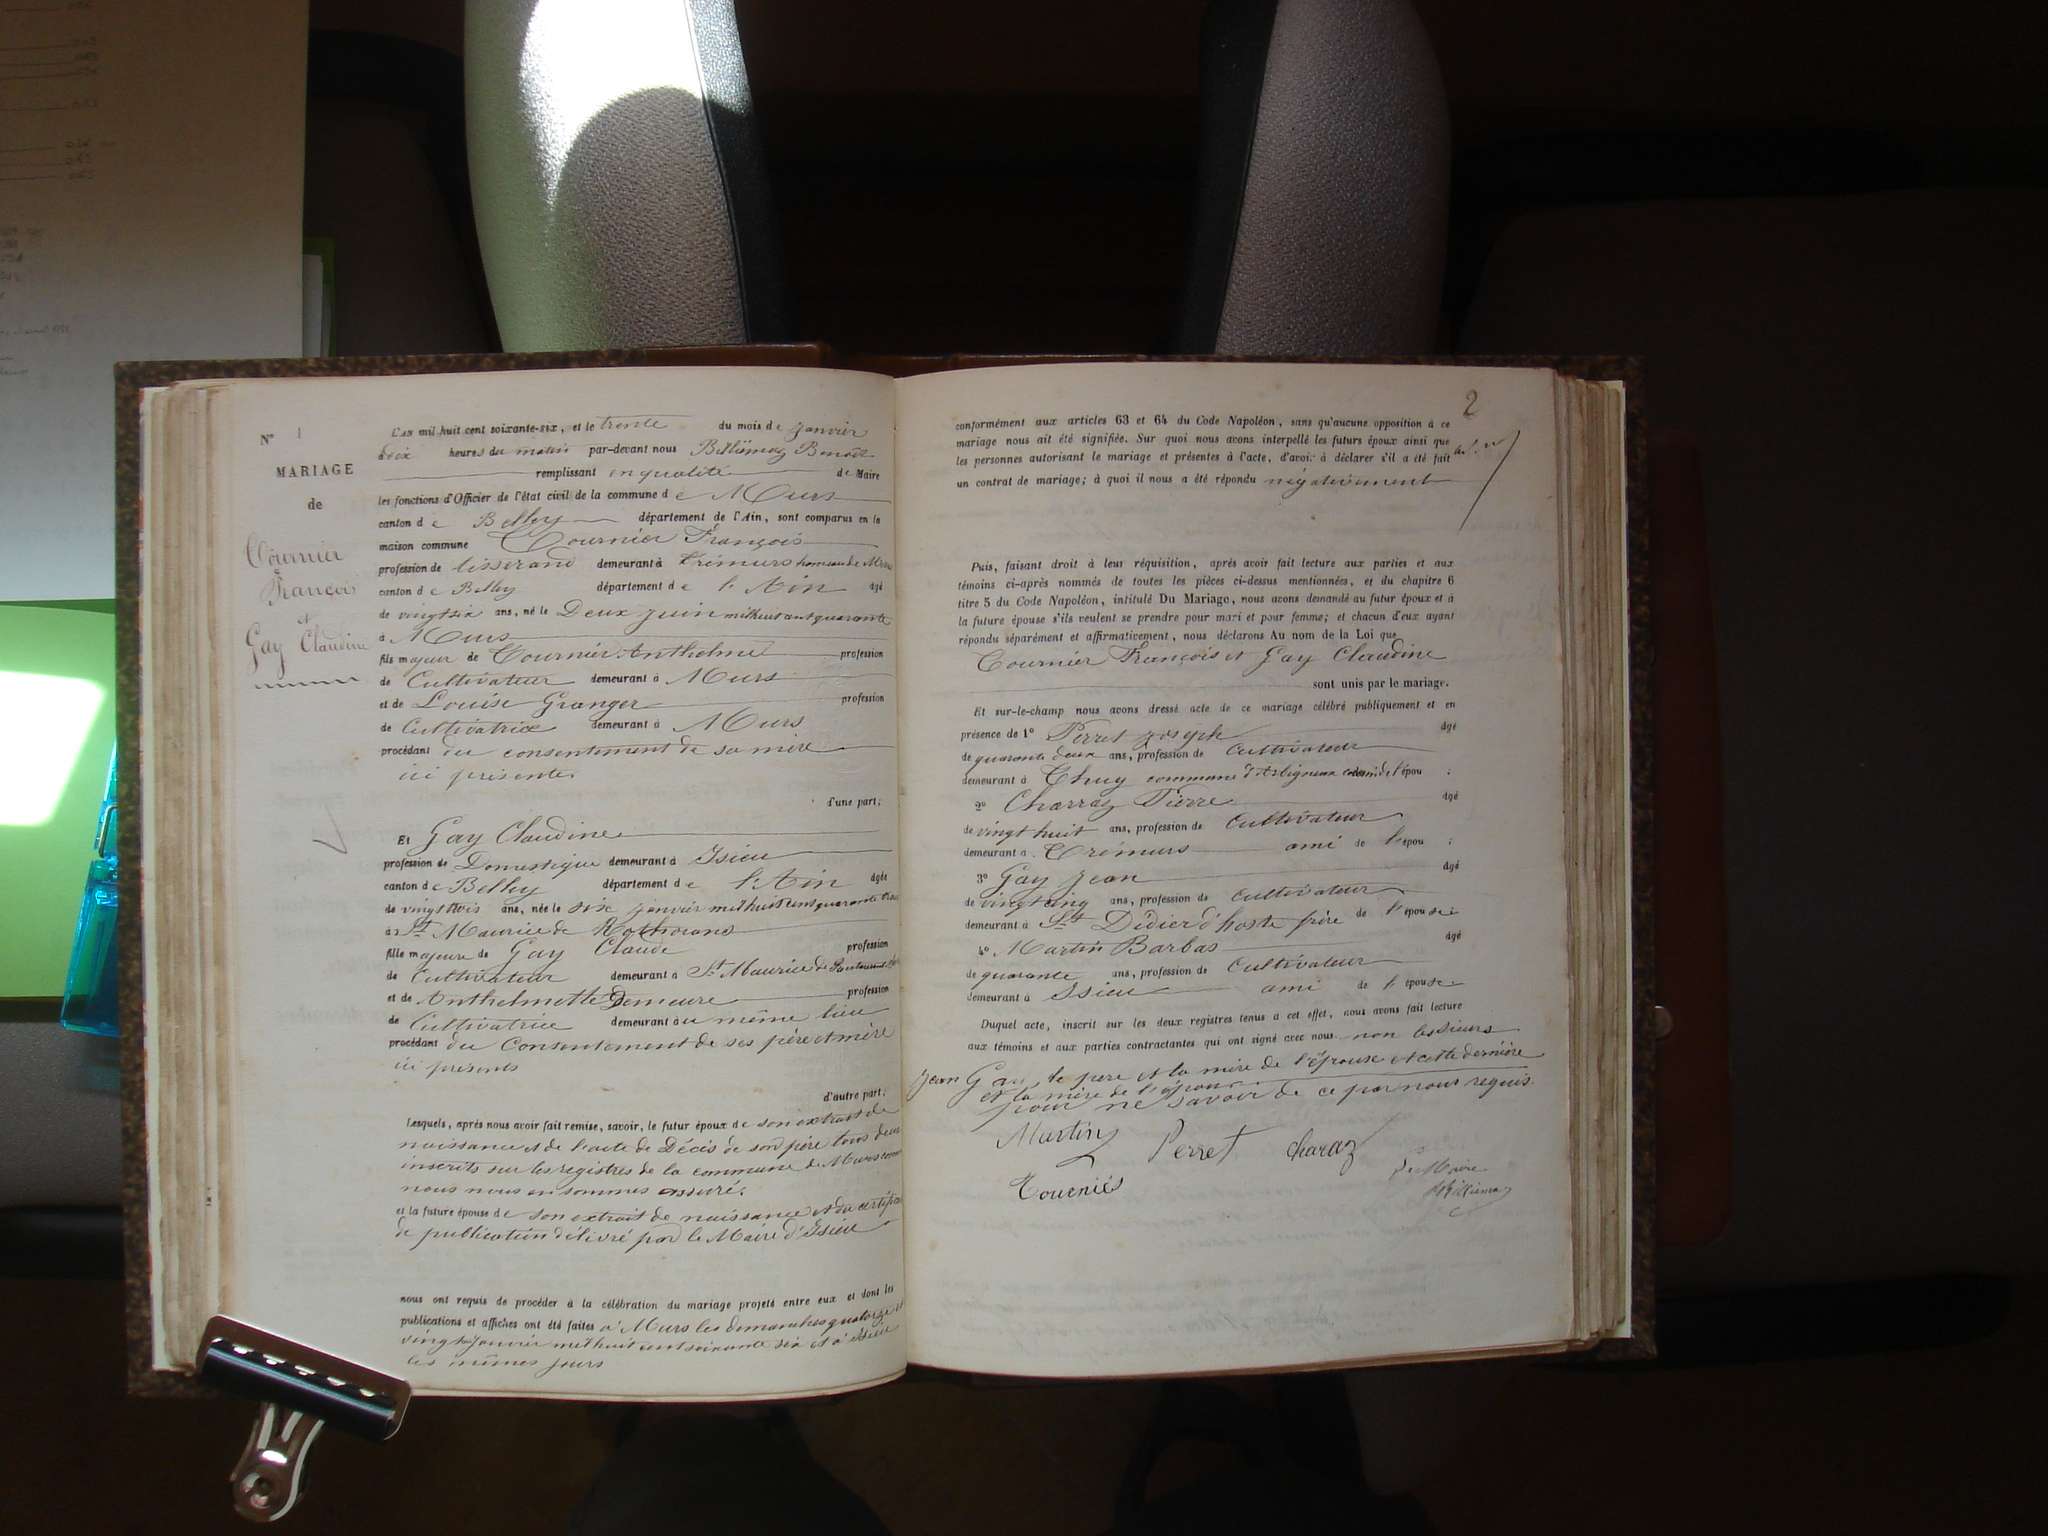 N° 1
MARIAGE
de
Tournier
François
et
Gay Claudine
L'AN mil huit cent soixante-six, et le trente du mois de janvier
à dix heures du matin par-devant nous Bellemay Benoît
remplissant en qualité de Maire
les fonctions d'Officier de l'état civil de la commune de Murs
canton de Belley département de l'Ain, sont comparus en la
maison commune Tournier François
profession de tisserand demeurant à Trémurs hameau de Murs
canton de Belley département de l'Ain âgé
de vingt six ans, né le Deux juin mil huit cent quarante
à Murs
fils majeur de Tournier Anthelme profession
de Cultivateur demeurant à Murs
et de Louise Granger profession
de Cultivatrice demeurant à Murs
procédant du consentement de sa mère
ici présente
d'une part;
Et Gay Claudine
profession de Domestique demeurant à Isieu
canton de Belley département de l'Ain âgée
de vingt trois ans, née le six janvier mil huit cent quarante trois
à St Maurice de
fille majeure de Gay Claude profession
de Cultivateur demeurant à St Maurice de
et de Anthelmette Demeure profession
de Cultivatrice demeurant au même lieu
procédant du Consentement de ses père et mère
ici présents
d'autre part;
Lesquels, après nous avoir fait remise, savoir, le futur époux de son extrait de
naissance et de l'acte de Décès de son père tous deux
inscrits sur les registres de la commune de Murs comme
nous nous en sommes assuré.
et la future épouse de son extrait de naissance et du certificat
de publication délivré par le Maire d'Isieu
nous ont requis de procéder à la célébration du mariage projeté entre eux et dont les
publications et affiches ont été faites à Murs les dimanches quatorze et
vingt un janvier mil huit cent soixante six et à Isieu
les mêmes jours
2
conformément aux articles 63 et 64 du Code Napoléon, sans qu'aucune opposition à ce
mariage nous ait été signifiée. Sur quoi nous avons interpellé les futurs époux ainsi que
les personnes autorisant le mariage et présentes à l'acte, d'avoir à déclarer s'il a été fait
un contrat de mariage; à quoi il nous a été répondu négativement
Puis, faisant droit à leur réquisition, après avoir fait lecture aux parties et aux
témoins ci-après nommés de toutes les pièces ci-dessus mentionnées, et du chapitre 6
titre 5 du Code Napoléon, intitulé Du Mariage, nous avons demandé au futur époux et à
la future épouse s'ils veulent se prendre pour mari et pour femme; et chacun d'eux ayant
répondu séparément et affirmativement, nous déclarons Au nom de la Loi que
Tournier François et Gay Claudine
sont unis par le mariage.
Et sur-le-champ nous avons dressé acte de ce mariage célébré publiquement et en
présence de 1° Perret joseph âgé
de quarante deux ans, profession de Cultivateur
demeurant à Thuy commune d'Arbigneux de l'épou ;
2° Charraz Pierre âgé
de vingt huit ans, profession de Cultivateur
demeurant à Trémurs ami de l'épou ;
3° Gay jean âgé
de vingt cinq ans, profession de Cultivateur
demeurant à St Didier d'hoste frère de l'épouse;
4° Martin Barbas âgé
de quarante ans, profession de Cultivateur
demeurant à Isieu ami de l'épouse
Duquel acte, inscrit sur les deux registres tenus à cet effet, nous avons fait lecture
aux témoins et aux parties contractantes qui ont signé avec nous non les sieurs
jean Gay, le père et la mère de l'épouse et cette dernière
et la mère de l'époux
pour ne savoir de ce par nous requis.
Martin Perret Charaz
Le Maire
Tournier